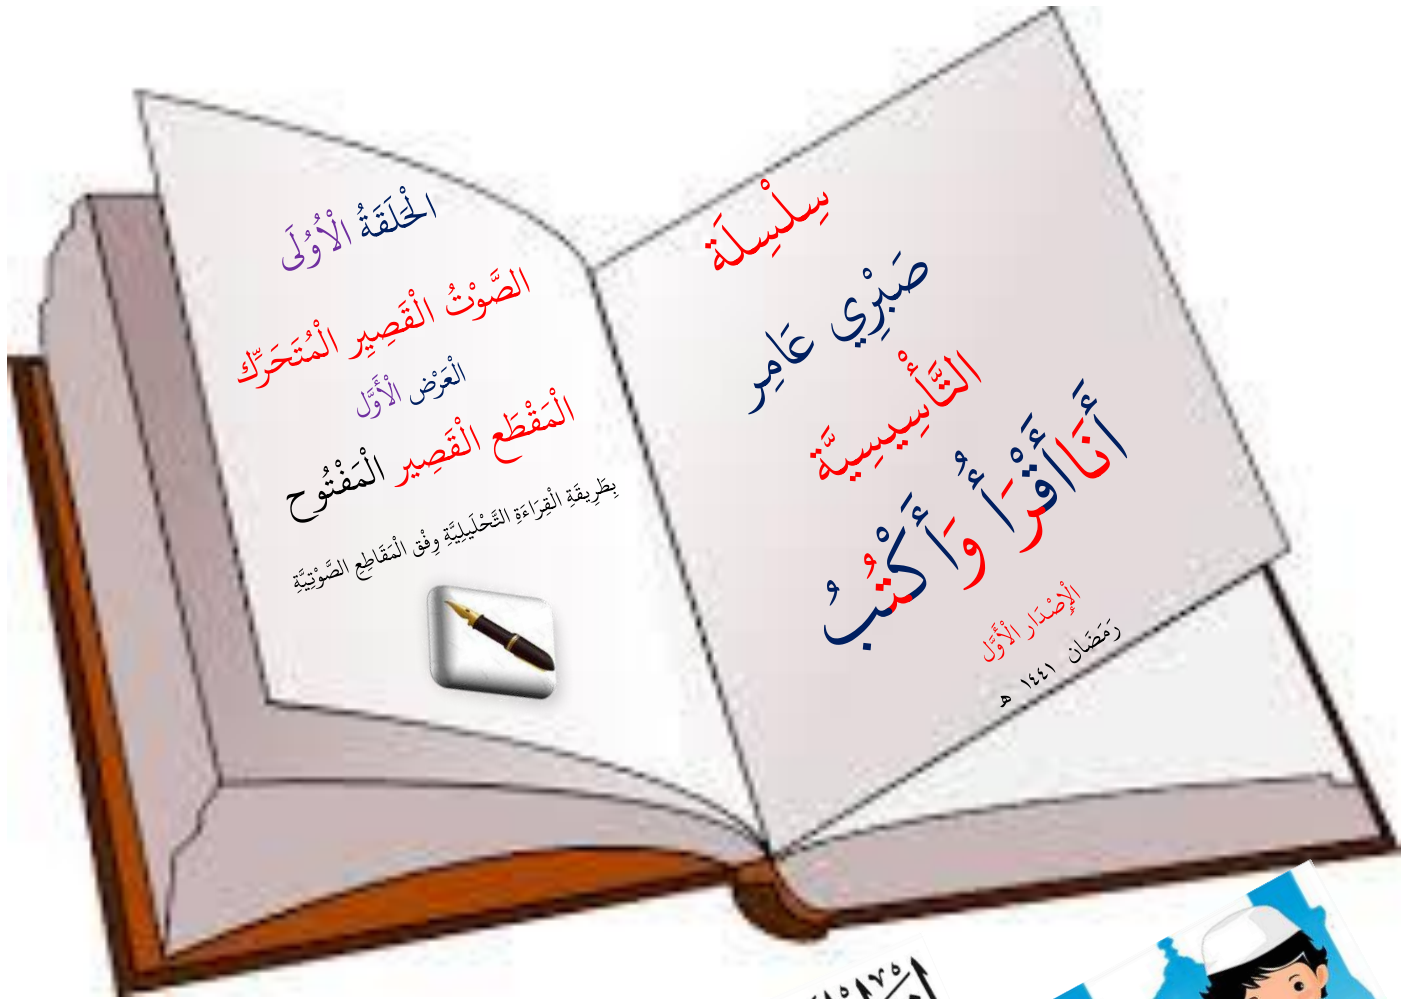 سِلْسِلَة
صَبْرِي عَامِر
التَّأْسِيسِيَّة
أَنَا أَقْرَأُ وَأَكْتُبُ
الْإِصْدَار الْأَوَّل
رَمَضَان ١٤٤١ هـ
الْحَلَقَةُ الْأُوْلَى
الصَّوْتُ الْقَصِيِر الْمُتَحَرِّك
الْعَرْض الْأَوَّل
الْمَقْطَع الْقَصِير الْمَفْتُوح
بِطَرِيقَةِ الْقِرَاءَةِ التَّحْلَيلِيَّةِ وِفْق الْمَقَاطِعِ الصَّوْتِيَّةِ